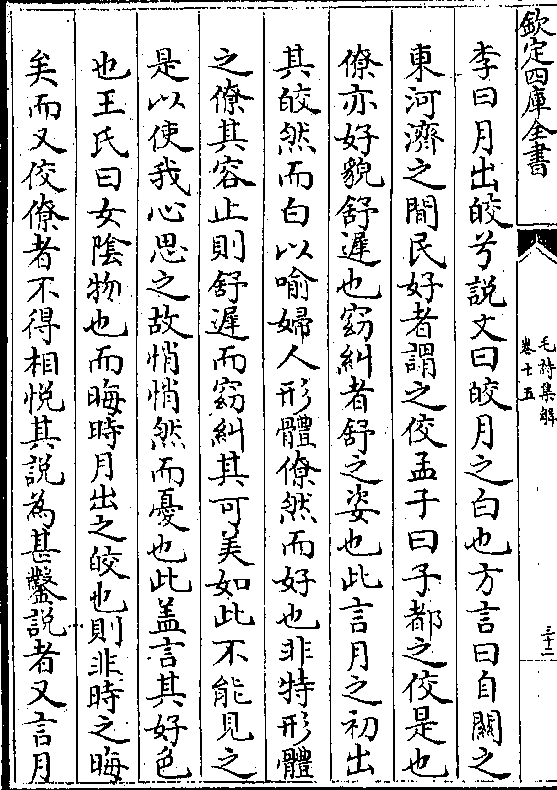 欽定四庫全書
毛詩集解
卷十五
三十二
李曰月出皎兮説文曰皎月之白也方言曰自關之
東河濟之間民好者謂之佼孟子曰子都之佼是也
僚亦好貌舒遲也窈糾者舒之姿也此言月之初出
其皎然而白以喻婦人形體僚然而好也非特形體
之僚其容止則舒遲而窈糾其可美如此不能見之
是以使我心思之故悄悄然而憂也此盖言其好色
也王氏曰女陰物也而晦時月出之皎也則非時之晦
矣而又佼僚者不得相悦其説為甚鑿説者又言月